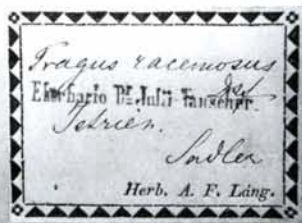 Tragus racemosus
E herbario Dr. Julii Tauscher.
Istrien.
Sadler
Herb. A. F. Láng.